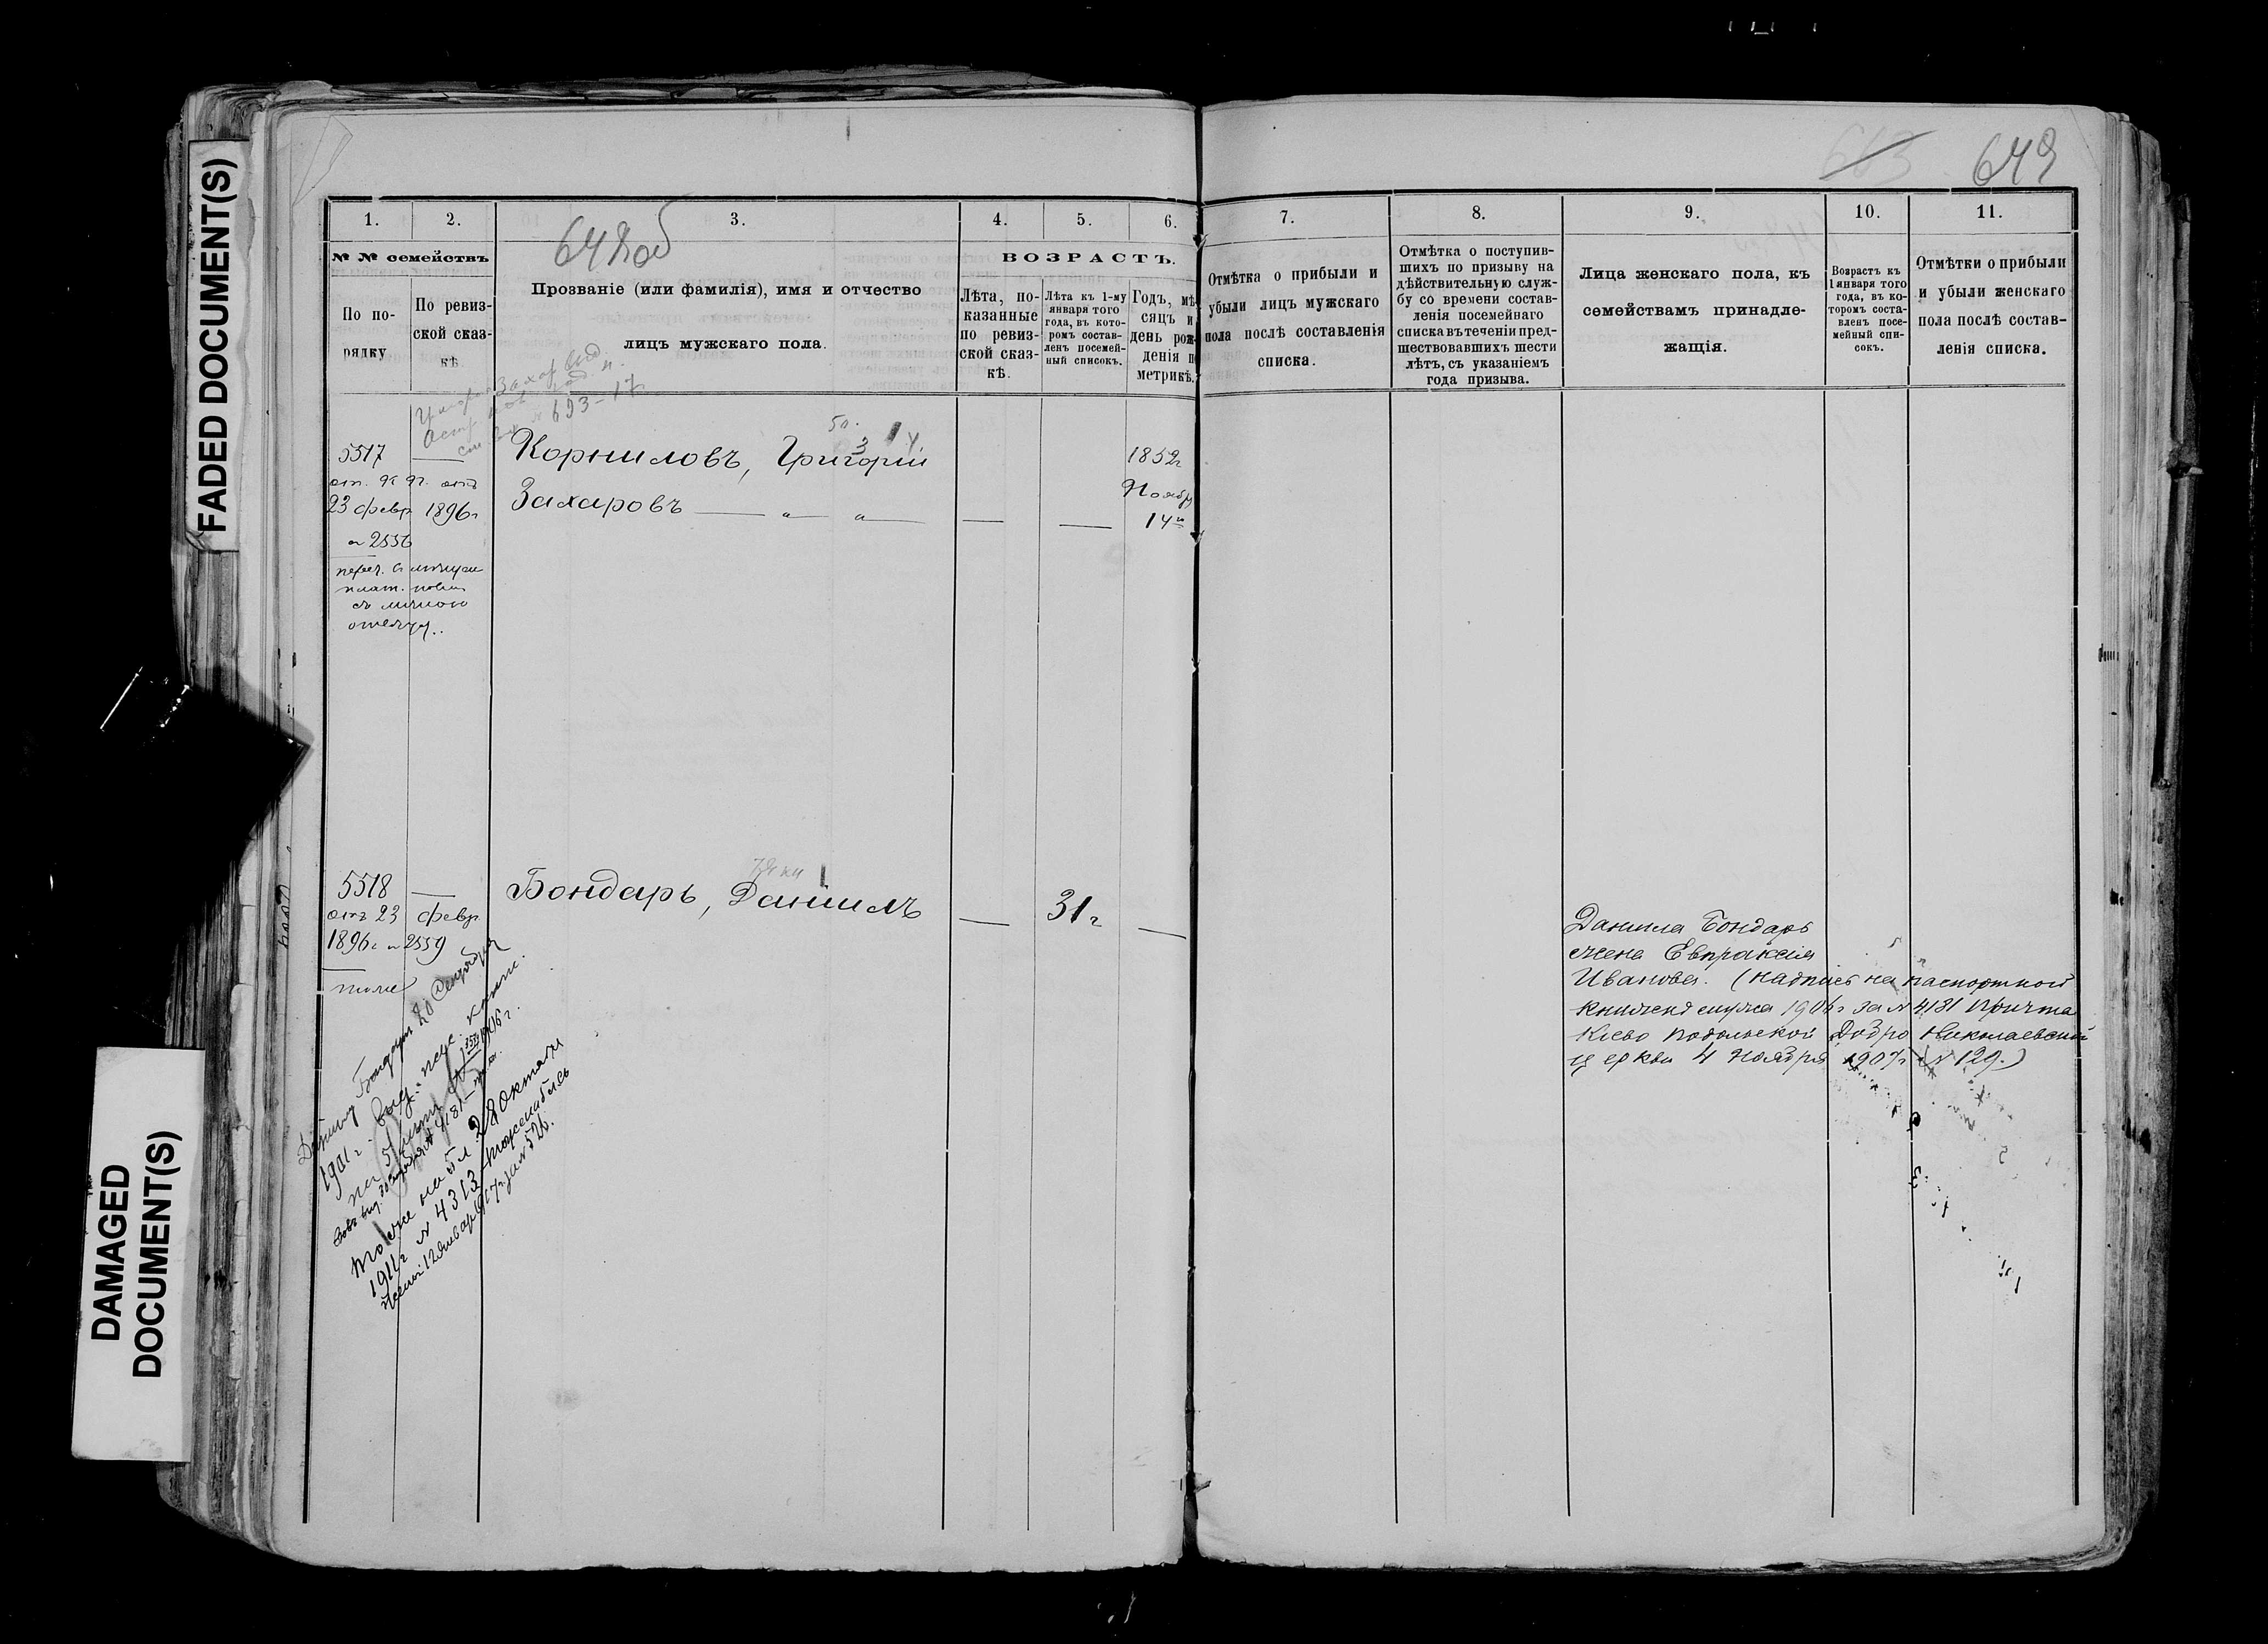 FADED DOCUMENT(S)
DAMAGED
DOCUMENT(S)
663 649
648 об
1. 2. 3. 4. 5. 6. 7. 8. 9. 10. 11.
№ № семействъ
По по-
рядку
По ревиз-
ской сказ-
кѣ.
Прозваніе (или фамилія), имя и отчество
лицъ мужскаго пола.
ВОЗРАСТЪ.
Лѣта, по-
казанные
по ревиз-
ской сказ-
кѣ.
Лѣта къ 1-му
января того
года, въ кото-
ромъ состав-
ленъ посемей-
ный списокъ.
Годъ, мѣ-
сяцъ и
день рож-
денія п
метрикѣ.
Отмѣтка о прибыли и
убыли лицъ мужскаго
пола послѣ составленія
списка.
Отмѣтка о поступив-
шихъ по призыву на
дѣйствительную служ-
бу со времени состав-
ленія посемейнаго
списка въ теченіи пред-
шествовавшихъ шести
лѣтъ, съ указаніемъ
года призыва.
Лица женскаго пола, къ
семействамъ принадле-
жащія.
Возрастъ къ
1 января того
года, въ ко-
торомъ соста-
вленъ посе-
мейный спи-
сокъ.
Отмѣтки о прибыли
и убыли женскаго
пола послѣ состав-
ленія списка.
693-17
5517 — Корниловъ, Григорій 1852г
23 февр 1896г Захаровъ — " — " — — — Ноябр
№ 2556 14го
5518 — Бондарь, Даніилъ — 31г —
отъ 23 февр
1896г № 2559
тоже
Бондарь 20 Сентября
1901г. выд. пасп. книж.
на 5 лѣтъ
1906г.
№ 4181
тоже на 5 л 28 октября
1911г № 4313
12 Января 1917г за № 526.
Данила Бондарь
жена Евпраксія
Иванова. (надпись на паспортной
1906г за № 4181 Причта
Кіево Подольской Добро Николаевской
церкви 4 Ноября 1907г № 129.)